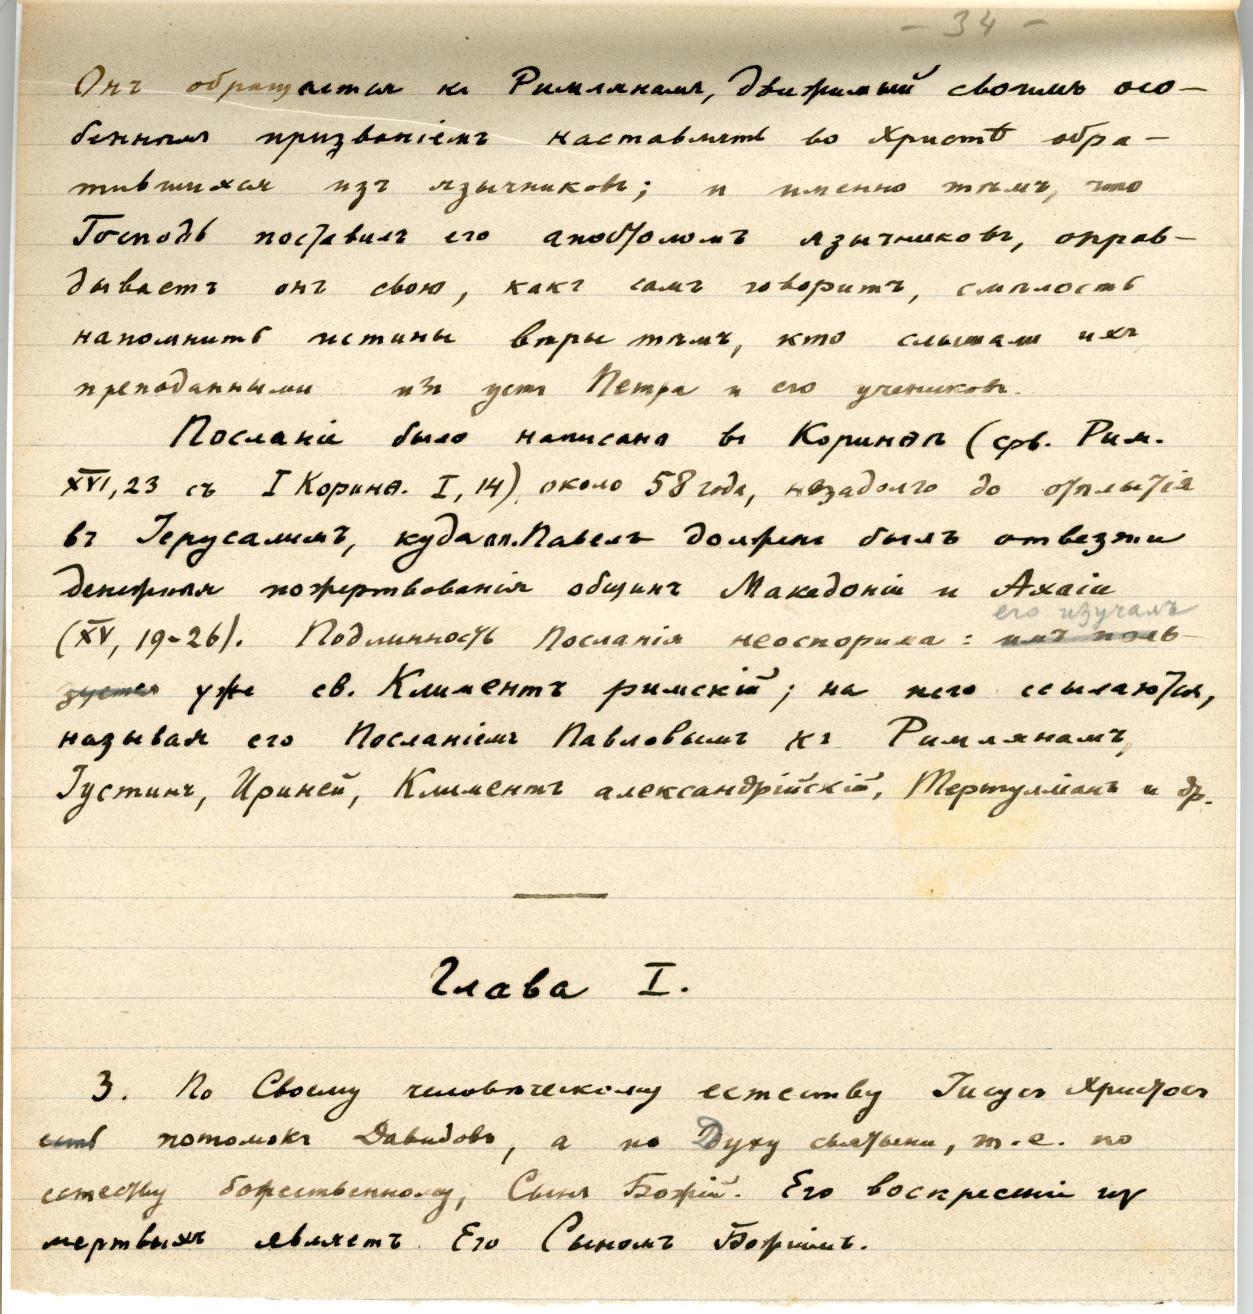 - 34 -
Онъ обращается къ Римлянамъ, движимый своимъ осо-
беннымъ призваніемъ наставлять во Христѣ обра-
тившихся изъ язычниковъ; и именно тѣмъ, что
Господь поставилъ его апостоломъ язычниковъ, оправ-
дываетъ онъ свою, какъ самъ говоритъ, смѣлость
напомнить истины вѣры тѣмъ, кто слышали ихъ
преподанными изъ устъ Петра и его учениковъ.
Посланіе было написано въ Коринѳѣ (срв. Рим.
XVI, 23 съ I Коринѳ. I, 14) около 58 года, незадолго до отплытія
въ Іерусалимъ, куда ап. Павелъ долженъ былъ отвезти
денежныя пожертвованія общинъ Македоніи и Ахаіи
его изучалъ
(XV, 19-26). Подлинность Посланія неоспорима: имъ поль-
зуется уже св. Климентъ римскій; на него ссылаются,
называя его Посланіемъ Павловымъ къ Римлянамъ,
Іустинъ, Ириней, Климентъ александрійскій, Тертулліанъ и др.
Глава I.
3. По Своему человѣческому естеству Іисусъ Христосъ
есть потомокъ Давидовъ, а по Духу святыни, т.е. по
естеству божественному, Сынъ Божій. Его воскресеніе из
мертвыхъ являетъ Его Сыномъ Божіимъ.